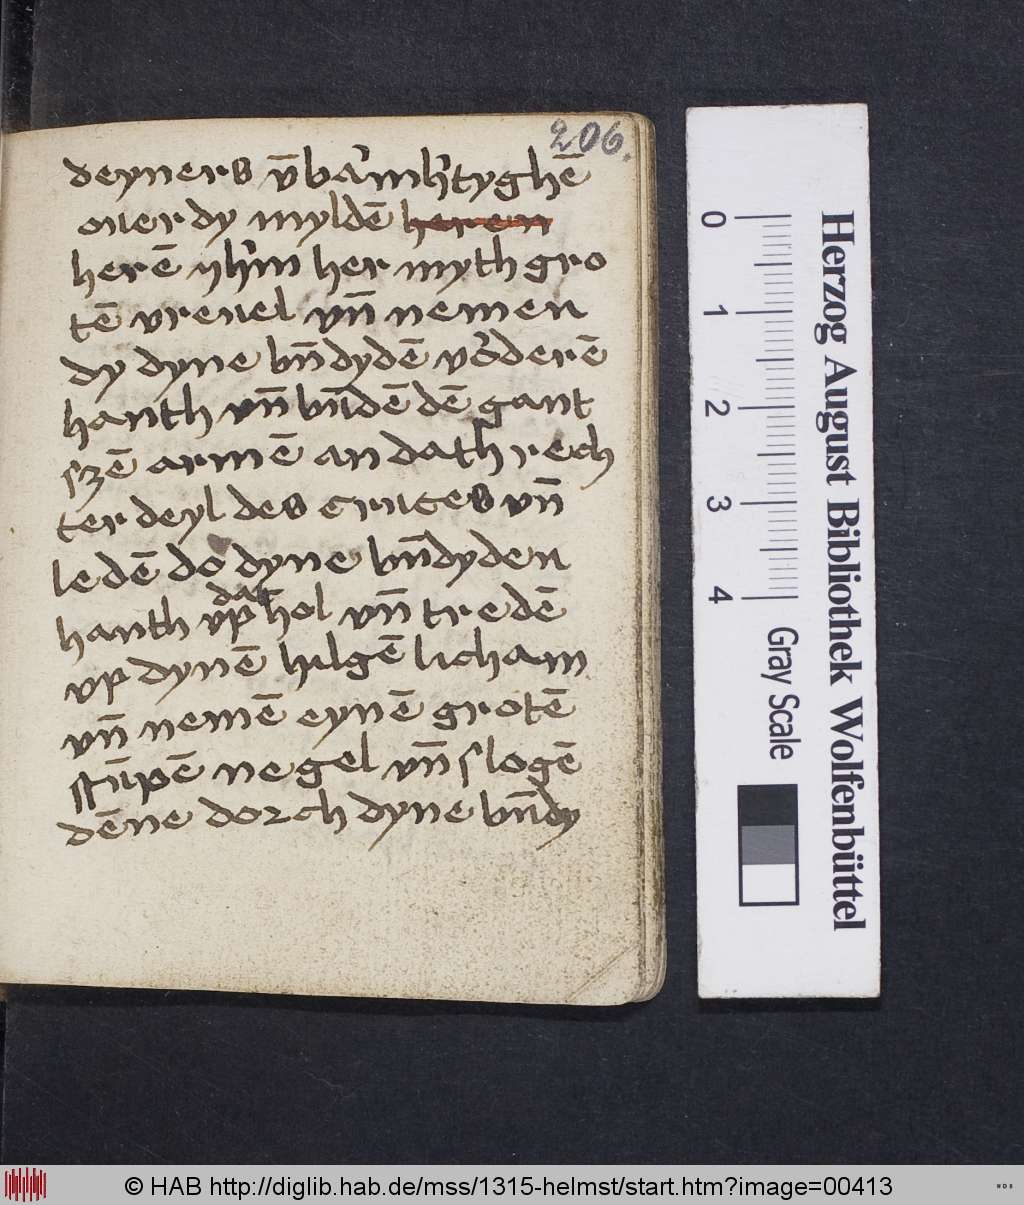 206.
deyners v̄barmh'tyghē
ouer dy myldē heren
herē yh'm her myth gro
tē vreuel vn̄ nemen
dy dyne bn̄dydē vōderē
hanth vn̄ bn̄dē dē gant
szē armē an dath rech
ter deyl des cruces vn̄
ledē do dyne bn̄dyden
hanth vp dat hol vn̄ tredē
vp dynē hilgē licham
vn̄ nemē eynē grotē
stūpē negel vn̄ slogē
dēne dorch dyne bn̄dy
0 1 2 3 4 Gray Scale
Herzog August Bibliothek Wolfenbüttel
© HAB http://diglib.hab.de/mss/1315-helmst/start.htm?image=00413